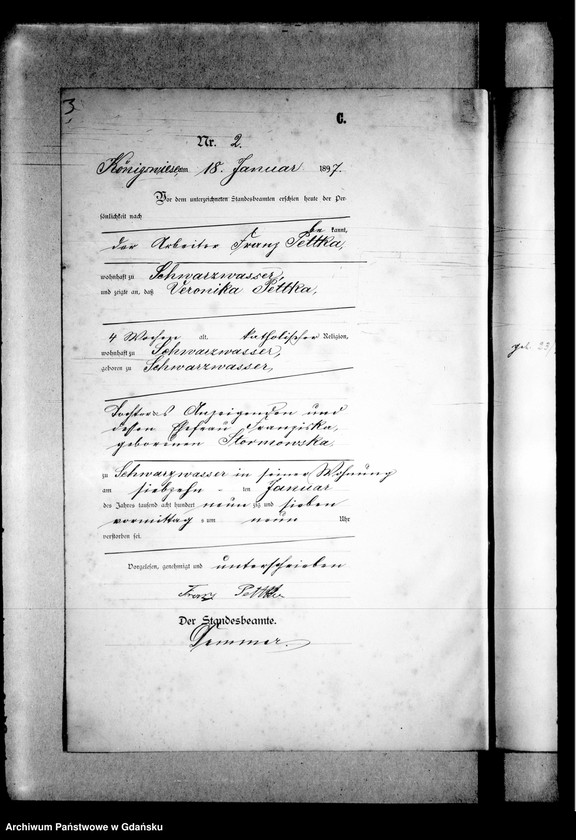 3
C.
Nr. 2.
Königswiese am 18. Januar 1897.
Vor dem unterzeichneten Standesbeamten erschien heute der Per-
sönlichkeit nach
be kannt,
der Arbeiter Franz Pettka,
wohnhaft zu Schwarzwasser,
und zeigte an, daß Veronika Pettka,
4 Wochen alt, katholischer Religion,
wohnhaft zu Schwarzwasser,
geboren zu Schwarzwasser,
Tochter des Anzeigenden und
dessen Ehefrau Franziska,
geborenen Stormowska,
zu Schwarzwasser in seiner Wohnung
am siebzehn - ten Januar
des Jahres tausend acht hundert neun zig und sieben
vormittag s um neun Uhr
verstorben sei.
Vorgelesen, genehmigt und unterschrieben
Franz Pettka
Der Standesbeamte.
geb. 23/
Archiwum Państwowe w Gdańsku